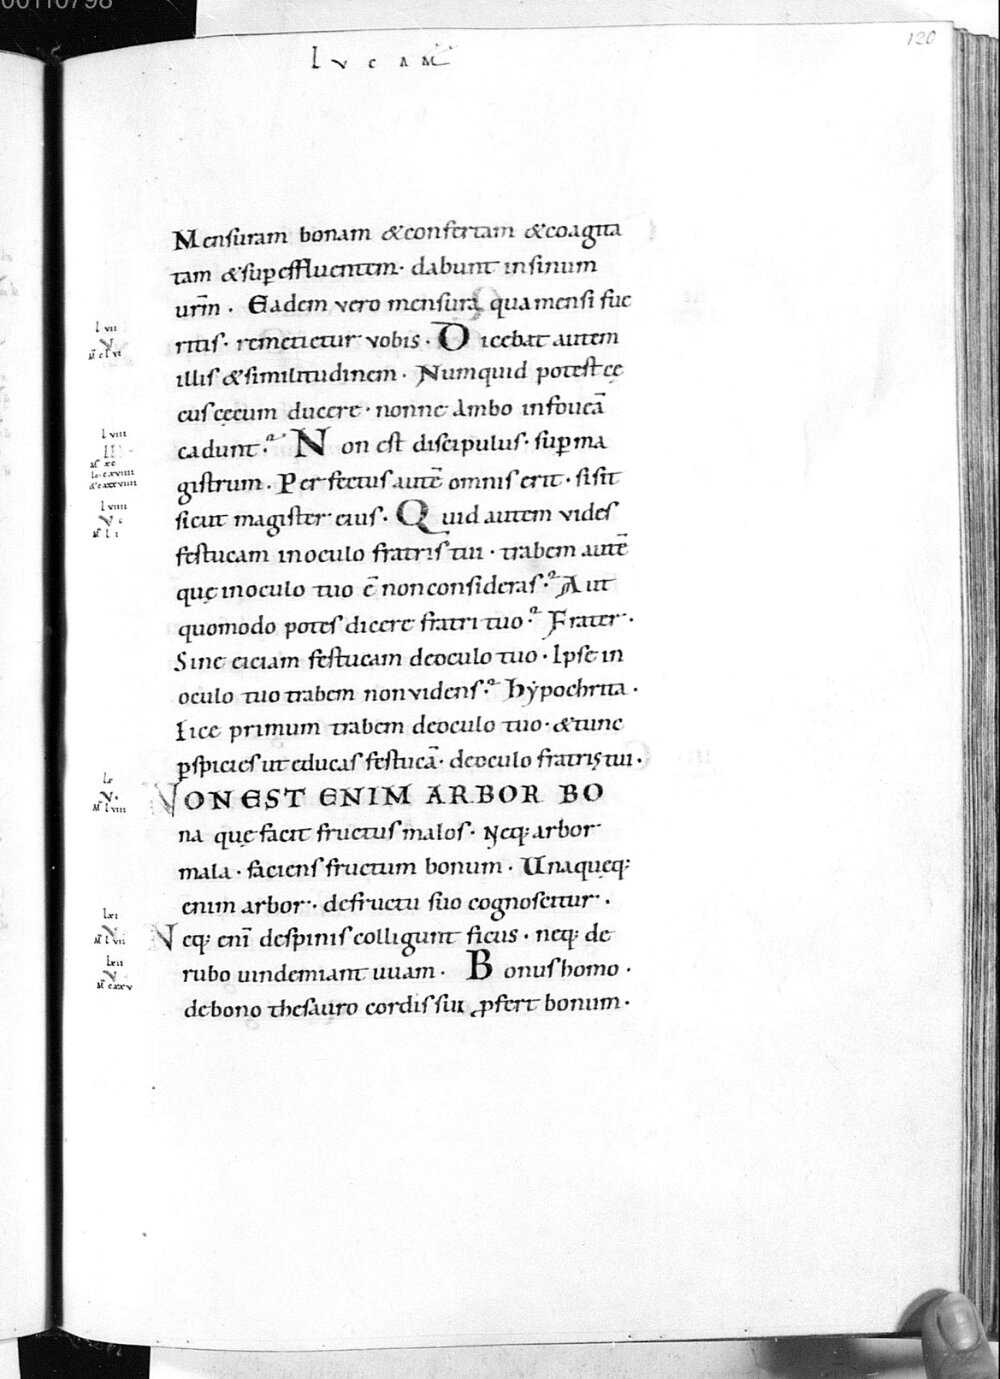 00110798
120
LVCAM
Mensuram bonam &confertam &coagita
tam &sup̱effluentem· dabunt insinum
urm̄ · Eadem vero mensura quamensi fue
ritis· remetietur vobis· Dicebat autem
illis &similitudinem · Numquid potest cę
cus cęcum ducere· nonne Ambo infouca̅
cadunt· Non est discipulus· sup̱ma
gistrum· Perfectus aute̅ omnis erit· sisit
sicut magister eius· Quid autem vides
festucam inoculo fratris tui· trabem aute̅
quę inoculo tuo e̅ nonconsideras· Aut
quomodo potes dicere fratri tuo· Frater·
Sine eiciam festucam deoculo tuo· Ipse in
oculo tuo trabem nonvidens· hẏpochrita·
Iice primum trabem deoculo tuo· &tunc
p̱spicies ut educas festuca̅· deoculo fratris tui·
NON EST ENIM ARBOR BO
na quę facit fructus malos· Neq; arbor
mala· faciens fructum bonum· Unaquęq;
enim arbor· defructu suo cognoscitur·
Neq; eni̅ despinis colligunt ficus· neq; de
rubo uindemiant uuam· Bonus homo·
debono thesauro cordis sui ꝓfert bonum·
lvii
v
M clvi
lviii
III
M xc
Io cxviiii
&cxxxviiii
lviiii
v
M li
lx
v
M lviii
lxi
v
M lvii
lxii
v
M cxxv